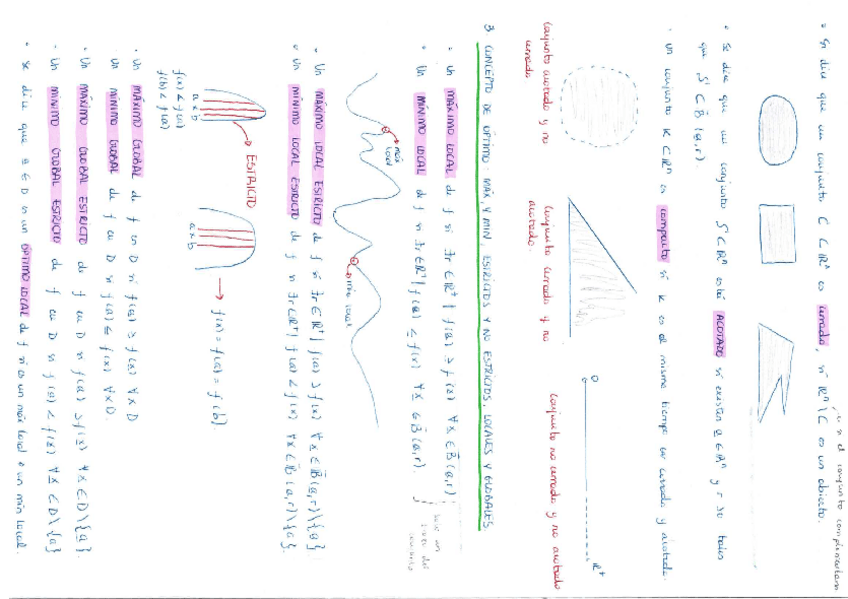 • Se dice que un conjunto C ⊂ ℝⁿ es cerrado, si ℝⁿ \ C es un abierto.
si el conjunto complementario
• Se dice que un conjunto S ⊂ ℝⁿ está ACOTADO si existen a ∈ ℝⁿ y r > 0 tales
que S ⊂ B̄ (a, r).
• Un conjunto K ⊂ ℝⁿ es compacto si K es al mismo tiempo cerrado y acotado.
Conjunto acotado y no
cerrado
Conjunto cerrado y no
acotado.
Conjunto no cerrado y no acotado
0 ℝ⁺
3. CONCEPTO DE ÓPTIMO MÁX, Y MIN, ESTRICTOS Y NO ESTRICTOS, LOCALES Y GLOBALES.
• Un MÁXIMO LOCAL de f si ∃r ∈ ℝ⁺ | f(a) ≥ f(x) ∀x ∈ B̄ (a, r)
• Un MÍNIMO LOCAL de f si ∃r ∈ ℝ⁺ | f(a) ≤ f(x) ∀x ∈ B̄ (a, r).
máx local
mín local
• Un MÁXIMO LOCAL ESTRICTO de f si ∃r ∈ ℝ⁺ | f(a) > f(x) ∀x ∈ B̄(a, r) \ {a}
• Un MÍNIMO LOCAL ESTRICTO de f si ∃r ∈ ℝ⁺ | f(a) < f(x) ∀x ∈ B̄(a, r) \ {a}.
→ ESTRICTO
a x b
f(x) < f(a)
f(b) < f(a)
a x b
→ f(x) = f(a) = f(b)
• Un MÁXIMO GLOBAL de f en D si f(a) ≥ f(x) ∀x D
• Un MÍNIMO GLOBAL de f en D si f(a) ≤ f(x) ∀x D.
• Un MÁXIMO GLOBAL ESTRICTO de f en D si f(a) > f(x) ∀x ∈ D \ {a}.
• Un MÍNIMO GLOBAL ESTRICTO de f en D si f(a) < f(x) ∀x ∈ D \ {a}
• Se dice que a ∈ D es un ÓPTIMO LOCAL de f si es un máx local o un mín local.